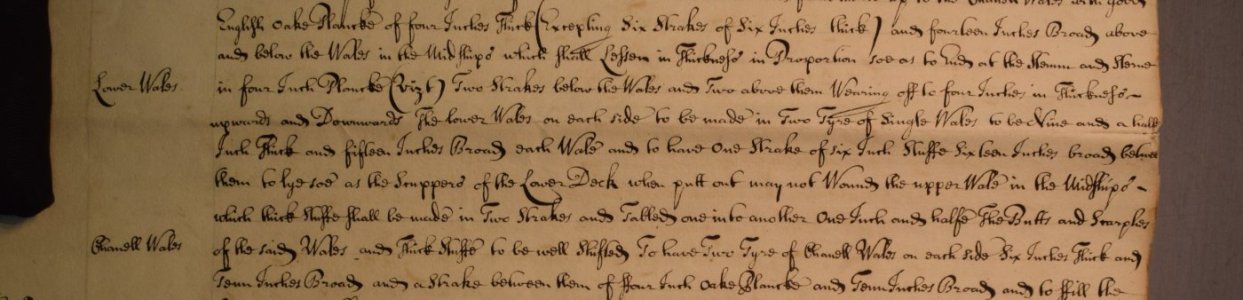 up to the Chanell Wales with good
English Oake Plancke of four Inches Thick (Excepting Six Strakes of Six Inches thick) and fourteen Inches Broad above
and below the Wales in the Midships which shall Lessen in Thickness in Proportion soe as to End at the Stemm and Sterne
Lower Wales
in four Inch Plancke (Vizt) Two Strakes below the Wales and Two above them Wearing off to four Inches in Thickness
upwards and Downwards The lower Wales on each side to be made in Two Tyre of Single Wales to be Nine and a halfe
Inch Thick and fifteen Inches Broad each Wale and to have One Strake of six Inch Stuffe Sixteen Inches broad between
them to lye soe as the Scuppers of the Lower Deck when putt out may not Wound the upper Wale in the Midships
which thick Stuffe shall be made in Two Strakes and Talled one into another One Inch and halfe The Butts and Scarphes
Chanell Wales
of the said Wales and Thick Stuffe to be well Shifted To have Two Tyre of Chanell Wales on each side Six Inches Thick and
Tenn Inches Broad and a Strake between them of ffour Inch Oake Plancke and Tenn Inches Broad and to ffill the